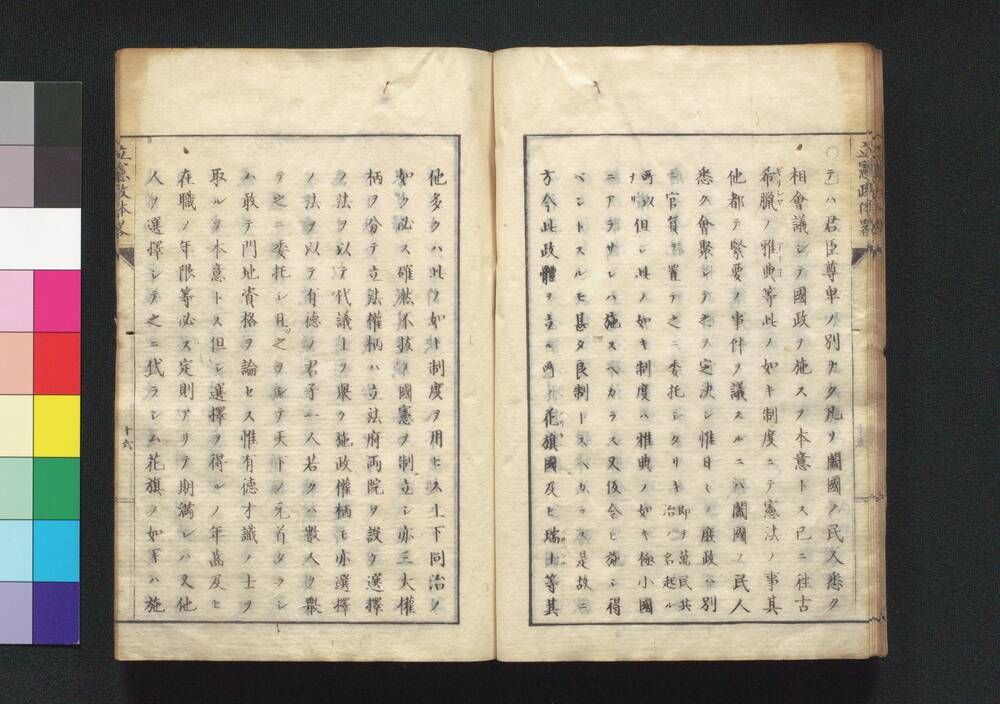 立憲政體略
○テハ君臣尊卑ノ別ナク凡ソ闔國ノ民人悉ク
相會議シテ國政ヲ施スヲ本意トス已ニ往古
希臘ノ雅典等此ノ如キ制度ニテ憲法ノ事其
ギリシヤ
他都テ緊要ノ事件ヲ議スルニハ闔國ノ民人
悉ク會聚シテ之ヲ定決シ惟日々ノ庶政ハ別
ニ官員ヲ置テ之ニ委托シタリキ
即チ萬民共
治ノ名起ル
所以
ナリ
但シ此ノ如キ制度ハ雅典ノ如キ極小國
ニアラサレハ施スヘカラス又仮令ヒ施シ得
ベシトスルモ甚タ良制トスヘカラス是故ニ
方今此政體ヲ立ル所ノ花旗國及ヒ瑞士等其
他多クハ此ノ如キ制度ヲ用ヒス上下同治ノ
如ク必ス確然不抜ノ國憲ヲ制立シ亦三大權
柄ヲ分テ立法權柄ハ立法府兩院ヲ設ケ選擇
ノ法ヲ以テ代議士ヲ擧ク施政權柄モ亦選擇
ノ法ヲ以テ有德ノ君子一人若クハ數人ヲ擧
テ之ニ委托シ且之ヲシテ天下ノ元首タラシ
ム敢テ門地資格ヲ論セス惟有德才識ノ士ヲ
取ルヲ本意トス但シ選擇ヲ得ルノ年萬及ヒ
在職ノ年限等必ス定則アリテ期滿レハ又他
人ヲ選擇シテ之ニ代ラシム花旗ノ如キハ施
立憲政体略
十六